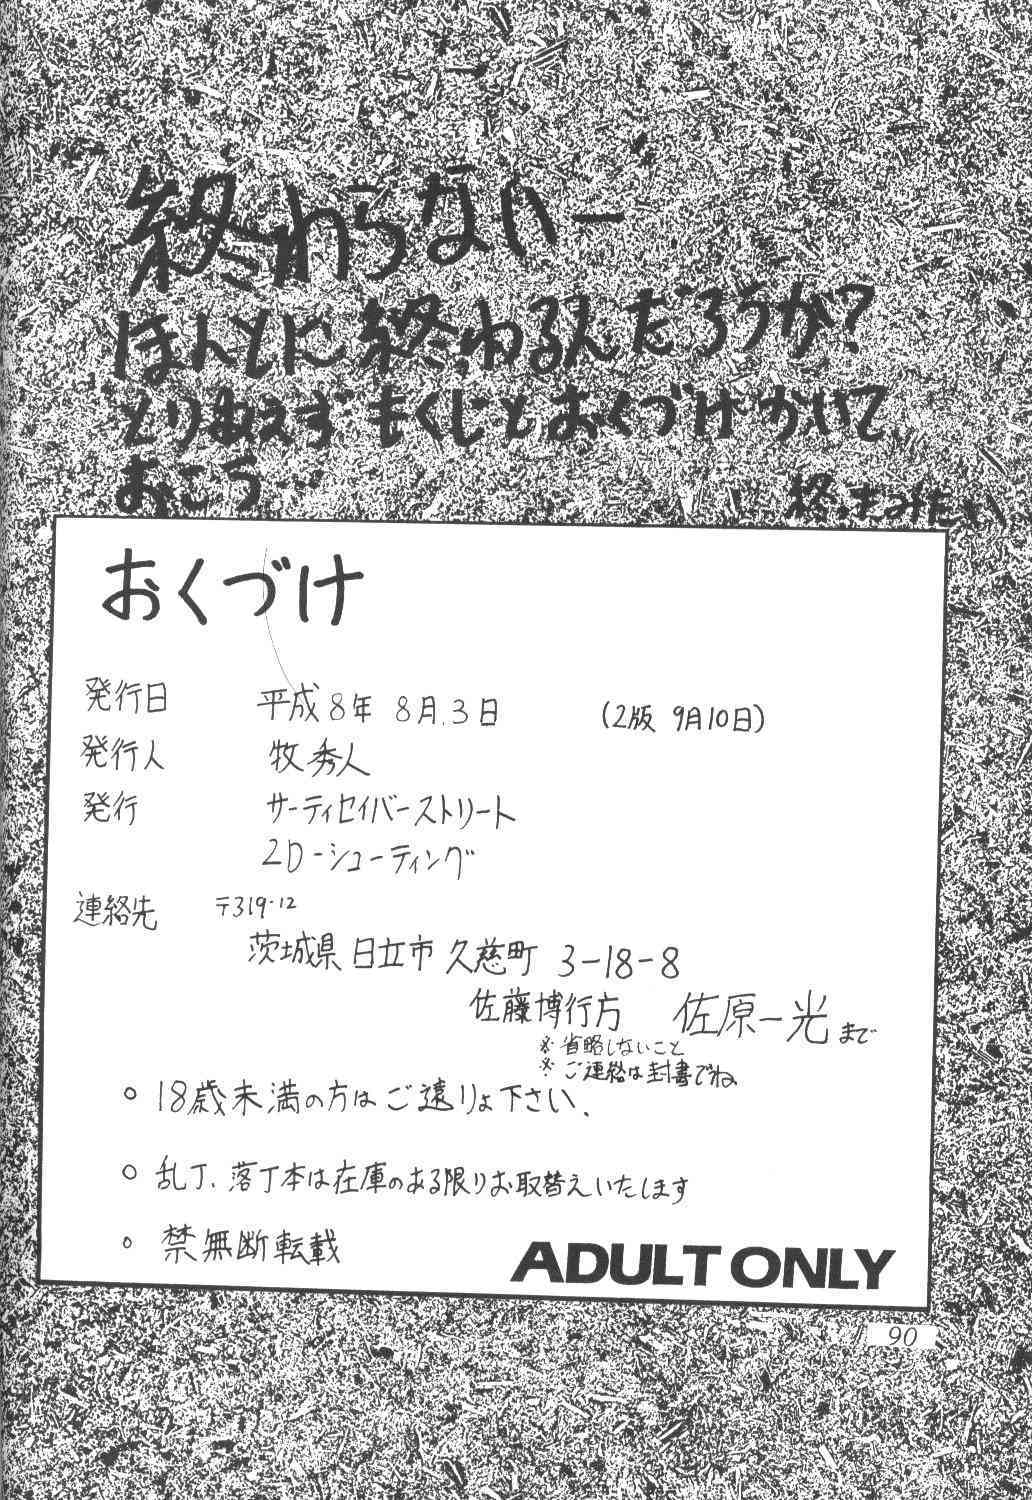 終わらないー
ほんとに終わるんだろうか?
とりあえず もくじとおくづけ かいて
おこう
おくづけ
発行日 平成8年 8月.3日 (2版 9月10日)
発行人 牧 秀人
発行 サーティセイバーストリート
2D-シューティング
連絡先 〒319-12
茨城県 日立市 久慈町 3-18-8
佐藤博行方 佐原一光 まで
※ 省略しないこと
※ ご連絡は封書でね
○ 18歳未満の方はご遠りょ下さい.
○ 乱丁、落丁本は在庫のある限りお取替えいたします
○ 禁無断転載
ADULT ONLY
90